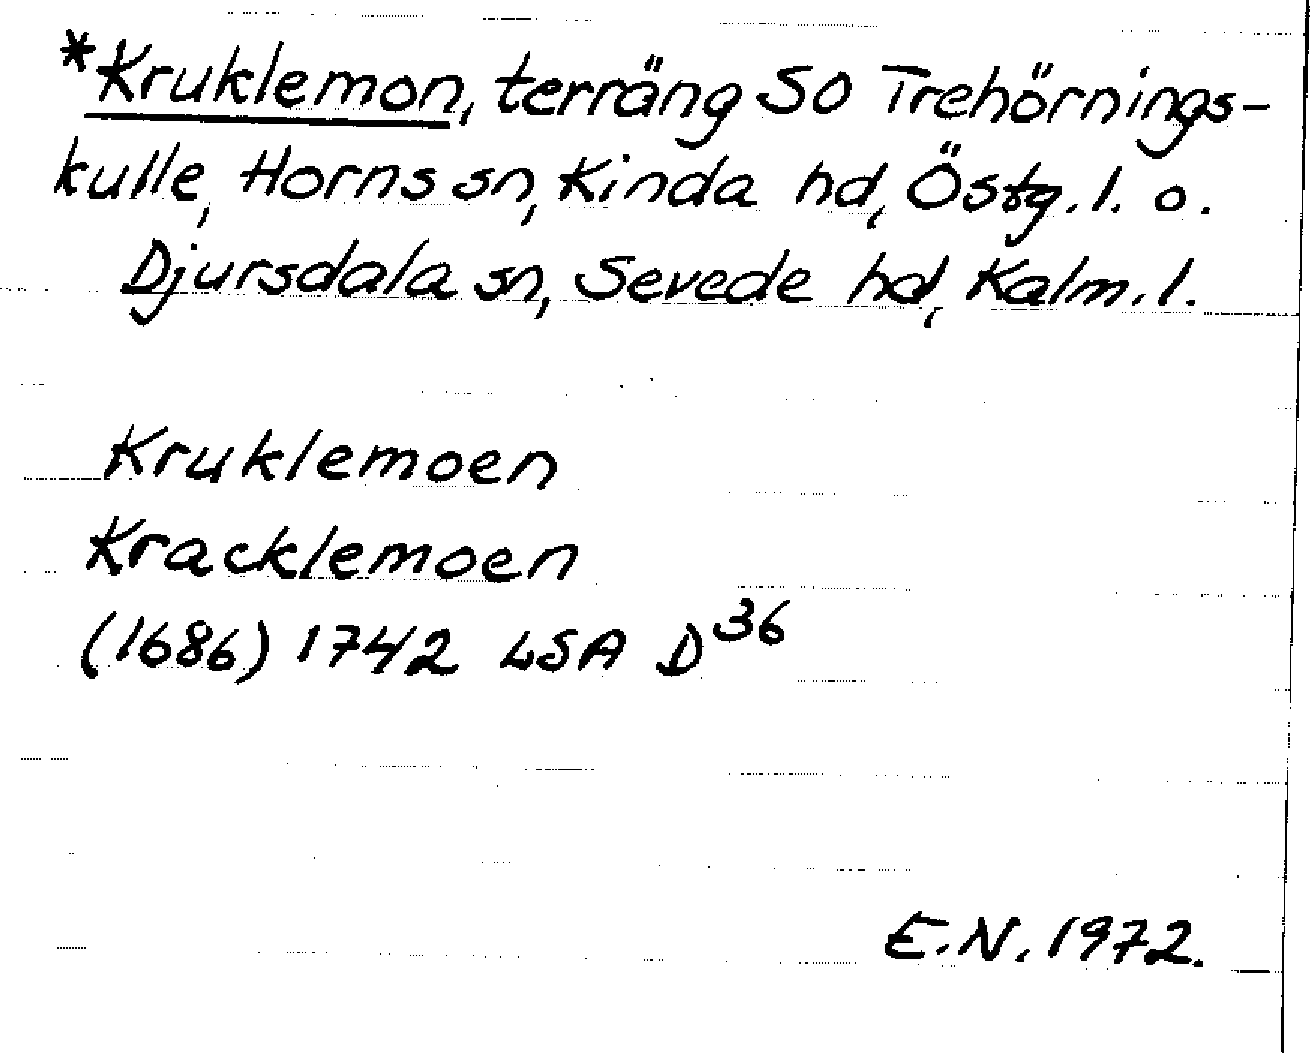 *Kruklemon, terräng SO Trehörnings-
kulle, Horns sn, Kinda hd, Östg. l. o.
Djursdala sn, Sevede hd, Kalm. l.
Kruklemoen
Kracklemoen
(1686) 1742 LSA D36
E.N. 1972.